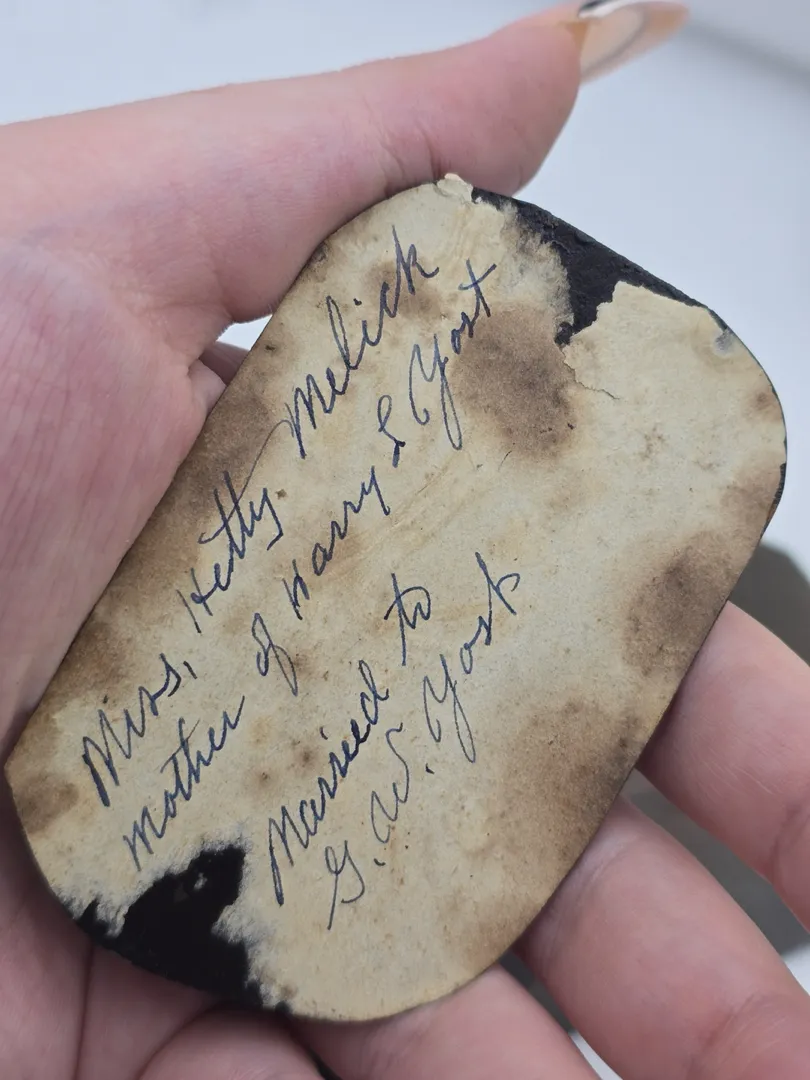 Miss, Hetty Melick
mother of Harry L Yost
Married to
G. W. Yost